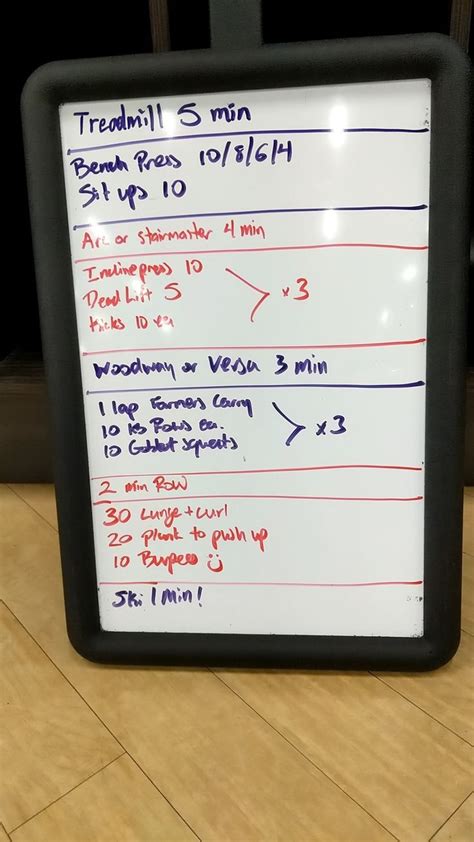 Treadmill 5 min
Bench Press 10/8/6/4
Sit ups 10
Arc or stairmaster 4 min
Incline press 10
Dead Lift 5
Kicks 10 ea
x3
Woodway or Versa 3 min
1 lap Farmers Carry
10 KB Rows ea.
10 Goblet Squats
x3
2 min Row
30 Lunge + curl
20 plank to push up
10 Burpees
Ski 1 min!